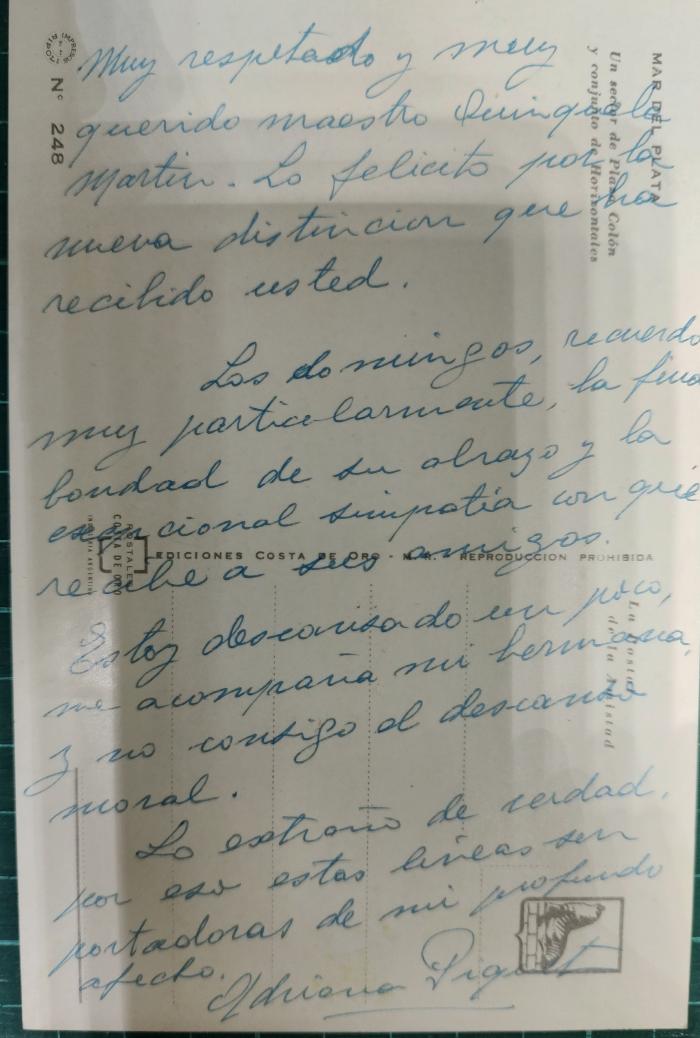 Muy respetado y muy
querido maestro Quinquela
Martin. Lo felicito por la
nueva distincion que ha
recibido usted.
Los domingos, recuerdo
muy particularmente, la fina
bondad de su abrazo y la
excepcional simpatía con que
recibe a sus amigos.
Estoy descansado un poco,
me acompaña mi hermana,
y no consigo el descanso
moral.
Lo extraño de verdad,
por eso estas líneas son
portadoras de mi profundo
afecto.
Adriana Piquet
MAR DEL PLATA
Un sector de Plaza Colón
y conjunto de Horizontales
Nº 248
POSTALES
COSTA DE ORO
INDUSTRIA ARGENTINA
EDICIONES COSTA DE ORO - M.R. - REPRODUCCION PROHIBIDA
La Postal
de la Amistad